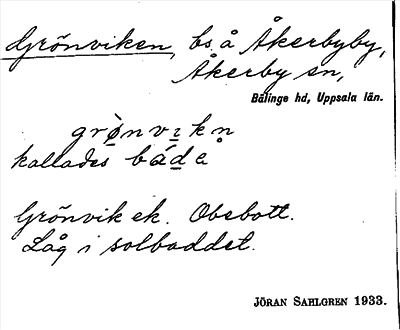 Grönviken, bs å Åkerbyby,
Åkerby sn,
Bälinge hd, Uppsala län.
grò̱nvɪkn
kallades bá̱de
Grönvik ek. Obebott.
Låg i solbaddet.
JÖRAN SAHLGREN 1933.